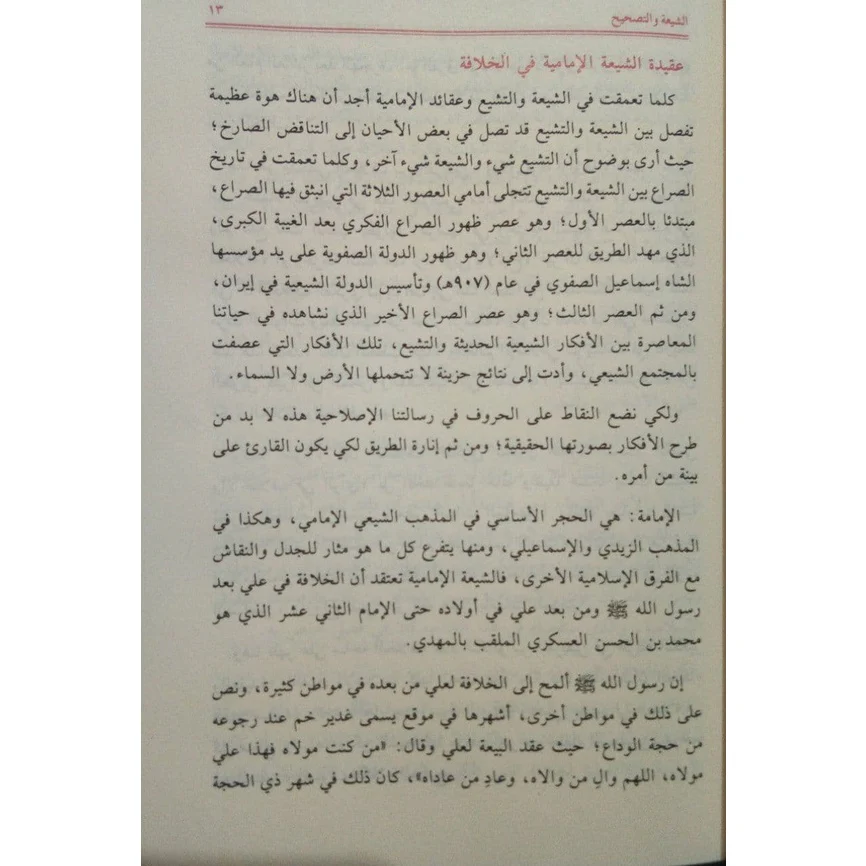 الشيعة والتصحيح
١٣
عقيدة الشيعة الإمامية في الخلافة
كلما تعمقت في الشيعة والتشيع وعقائد الإمامية أجد أن هناك هوة عظيمة
تفصل بين الشيعة والتشيع قد تصل في بعض الأحيان إلى التناقض الصارخ؛
حيث أرى بوضوح أن التشيع شيء والشيعة شيء آخر، وكلما تعمقت في تاريخ
الصراع بين الشيعة والتشيع تتجلى أمامي العصور الثلاثة التي انبثق فيها الصراع،
مبتدئا بالعصر الأول؛ وهو عصر ظهور الصراع الفكري بعد الغيبة الكبرى،
الذي مهد الطريق للعصر الثاني؛ وهو ظهور الدولة الصفوية على يد مؤسسها
الشاه إسماعيل الصفوي في عام (٩٠٧هـ) وتأسيس الدولة الشيعية في إيران،
ومن ثم العصر الثالث؛ وهو عصر الصراع الأخير الذي نشاهده في حياتنا
المعاصرة بين الأفكار الشيعية الحديثة والتشيع، تلك الأفكار التي عصفت
بالمجتمع الشيعي، وأدت إلى نتائج حزينة لا تتحملها الأرض ولا السماء.
ولكي نضع النقاط على الحروف في رسالتنا الإصلاحية هذه لا بد من
طرح الأفكار بصورتها الحقيقية؛ ومن ثم إنارة الطريق لكي يكون القارئ على
بينة من أمره.
الإمامة: هي الحجر الأساسي في المذهب الشيعي الإمامي، وهكذا في
المذهب الزيدي والإسماعيلي، ومنها يتفرع كل ما هو مثار للجدل والنقاش
مع الفرق الإسلامية الأخرى، فالشيعة الإمامية تعتقد أن الخلافة في علي بعد
رسول الله ﷺ ومن بعد علي في أولاده حتى الإمام الثاني عشر الذي هو
محمد بن الحسن العسكري الملقب بالمهدي.
إن رسول الله ﷺ ألمح إلى الخلافة لعلي من بعده في مواطن كثيرة، ونص
على ذلك في مواطن أخرى، أشهرها في موقع يسمى غدير خم عند رجوعه
من حجة الوداع؛ حيث عقد البيعة لعلي وقال: «من كنت مولاه فهذا علي
مولاه، اللهم والِ من والاه، وعادِ من عاداه»، كان ذلك في شهر ذي الحجة